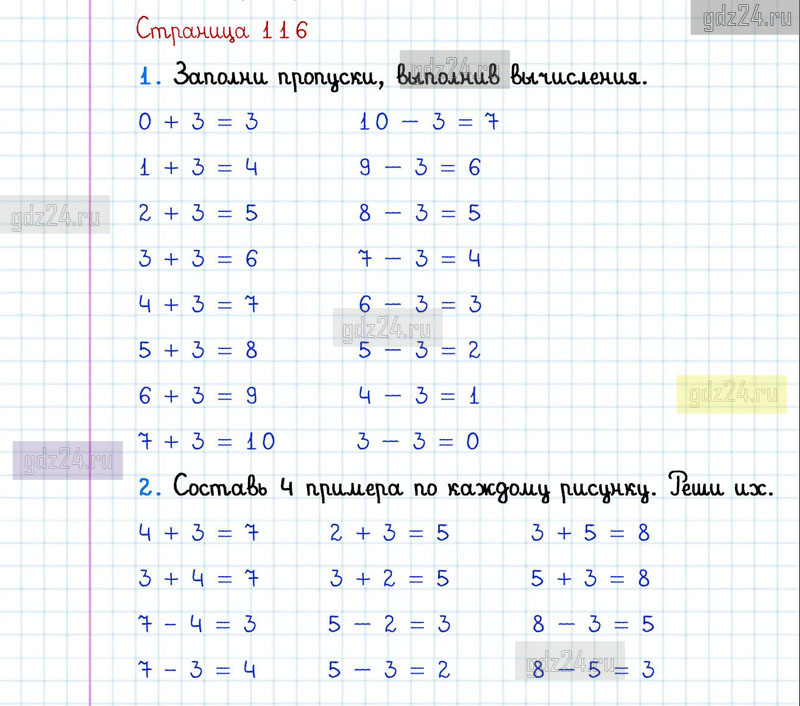 gdz24.ru
Страница 116
1. Заполни пропуски, выполнив вычисления.
gdz24.ru
0 + 3 = 3 10 - 3 = 7
1 + 3 = 4 9 - 3 = 6
2 + 3 = 5 8 - 3 = 5
gdz24.ru
3 + 3 = 6 7 - 3 = 4
4 + 3 = 7 6 - 3 = 3
gdz24.ru
5 + 3 = 8 5 - 3 = 2
6 + 3 = 9 4 - 3 = 1
gdz24.ru
7 + 3 = 10 3 - 3 = 0
gdz24.ru
2. Составь 4 примера по каждому рисунку. Реши их.
4 + 3 = 7 2 + 3 = 5 3 + 5 = 8
3 + 4 = 7 3 + 2 = 5 5 + 3 = 8
7 - 4 = 3 5 - 2 = 3 8 - 3 = 5
7 - 3 = 4 5 - 3 = 2 8 - 5 = 3
gdz24.ru